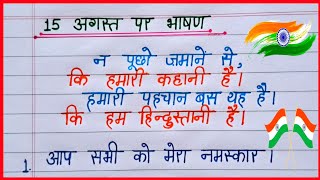 15 अगस्त पर भाषण
न पूछो जमाने से,
कि हमारी कहानी है।
हमारी पहचान बस यह है।
कि हम हिन्दुस्तानी है।
1. आप सभी को मेरा नमस्कार।